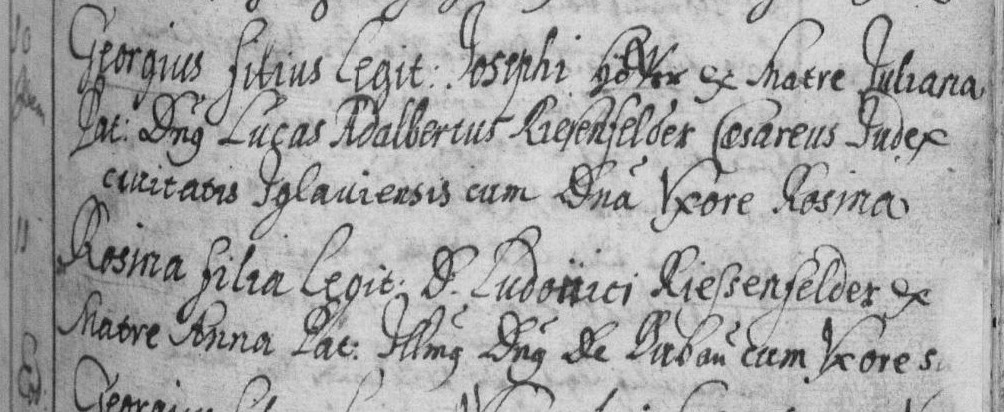 Georgius filius legit: Josephi et Matre Juliana
Pat: Dnus Lucas Adalbertus Riesenfelder Cæsareus Judex
civitatis Iglaviensis cum Dnã Uxore Rosina
Rosina filia legit: D. Ludovici Riessenfelder et
Matre Anna Pat: Illmus Dnus de cum Uxore s.
Georgius